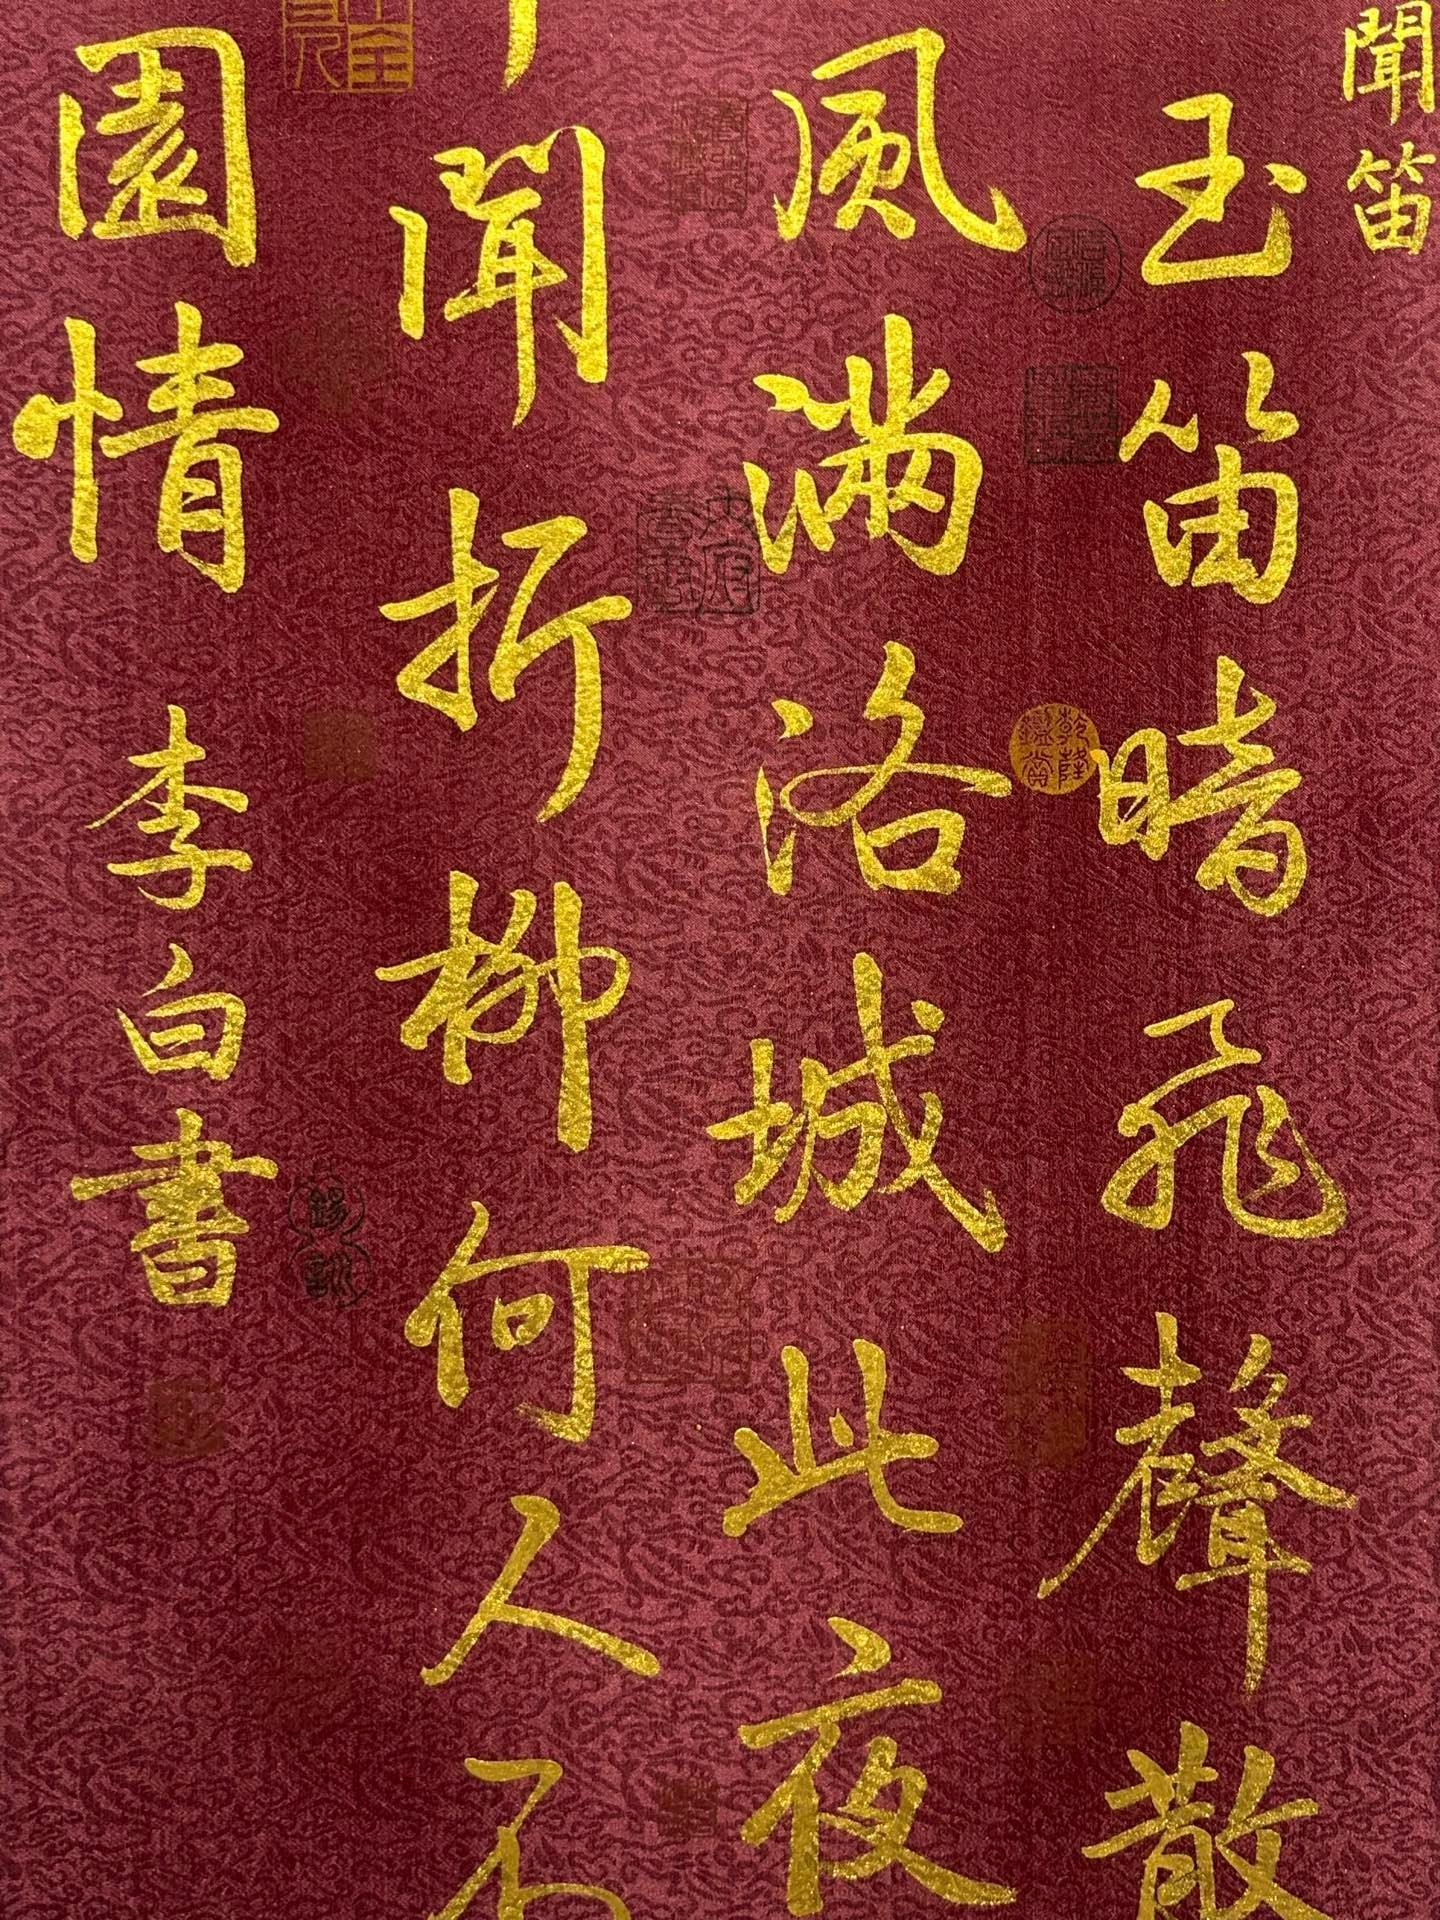 聞笛
玉笛暗飛聲散
風滿洛城此夜
聞折柳何人不
園情
李白書